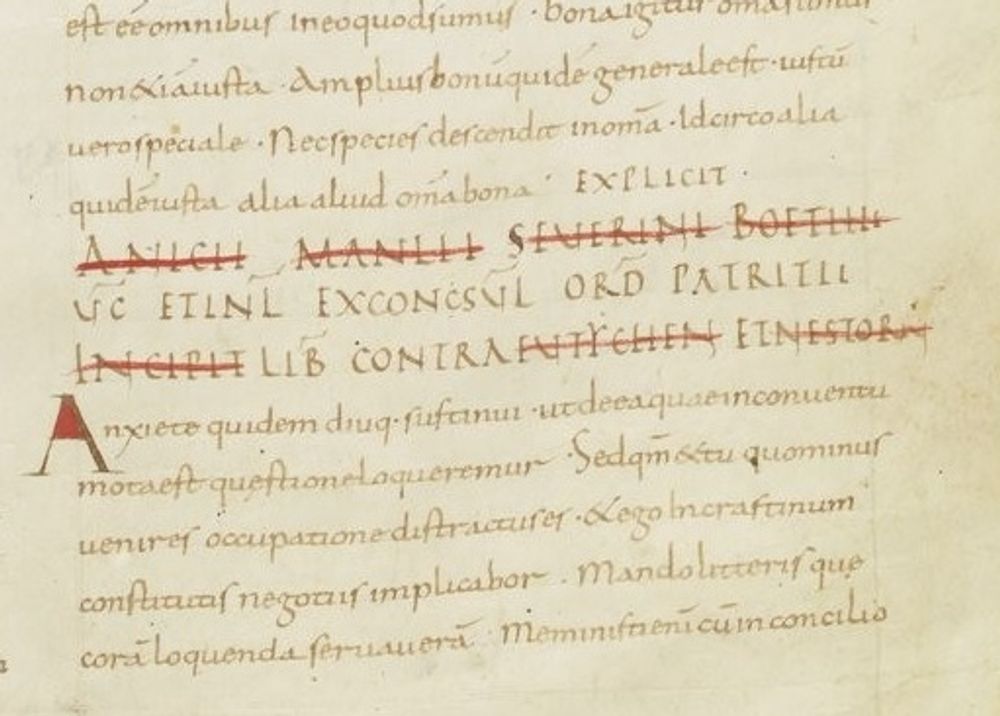 est eé omnibus in eo quod sumus · bona igitur oma sunt
non & iā iusta · Amplius bonū quidē generale est · iustū
uero speciale · Nec species descendit in oma̅ · Idcirco alia
quidē iusta alia aliud om̅a bona · EXPLICIT ·
ANICII MANLII SEVERINI BOETIIII
VC̅ ET INL̅ EXCONCSVL ORD̅ PATRITII
INCIPIT LIB̅ CONTRA EUTYCHEN ET NESTORA̅
Anxiete quidem diuq· sustinui · ut de ea quae in conuentu
mota est quęstione loqueremur · Sed qm̅ & tu quominus
uenires occupatione distractus es · & ego In crastinum
constitutis negotiis implicabor · Mando litteris quę
corā loquenda seruauerā · Meministi enī cū in concilio